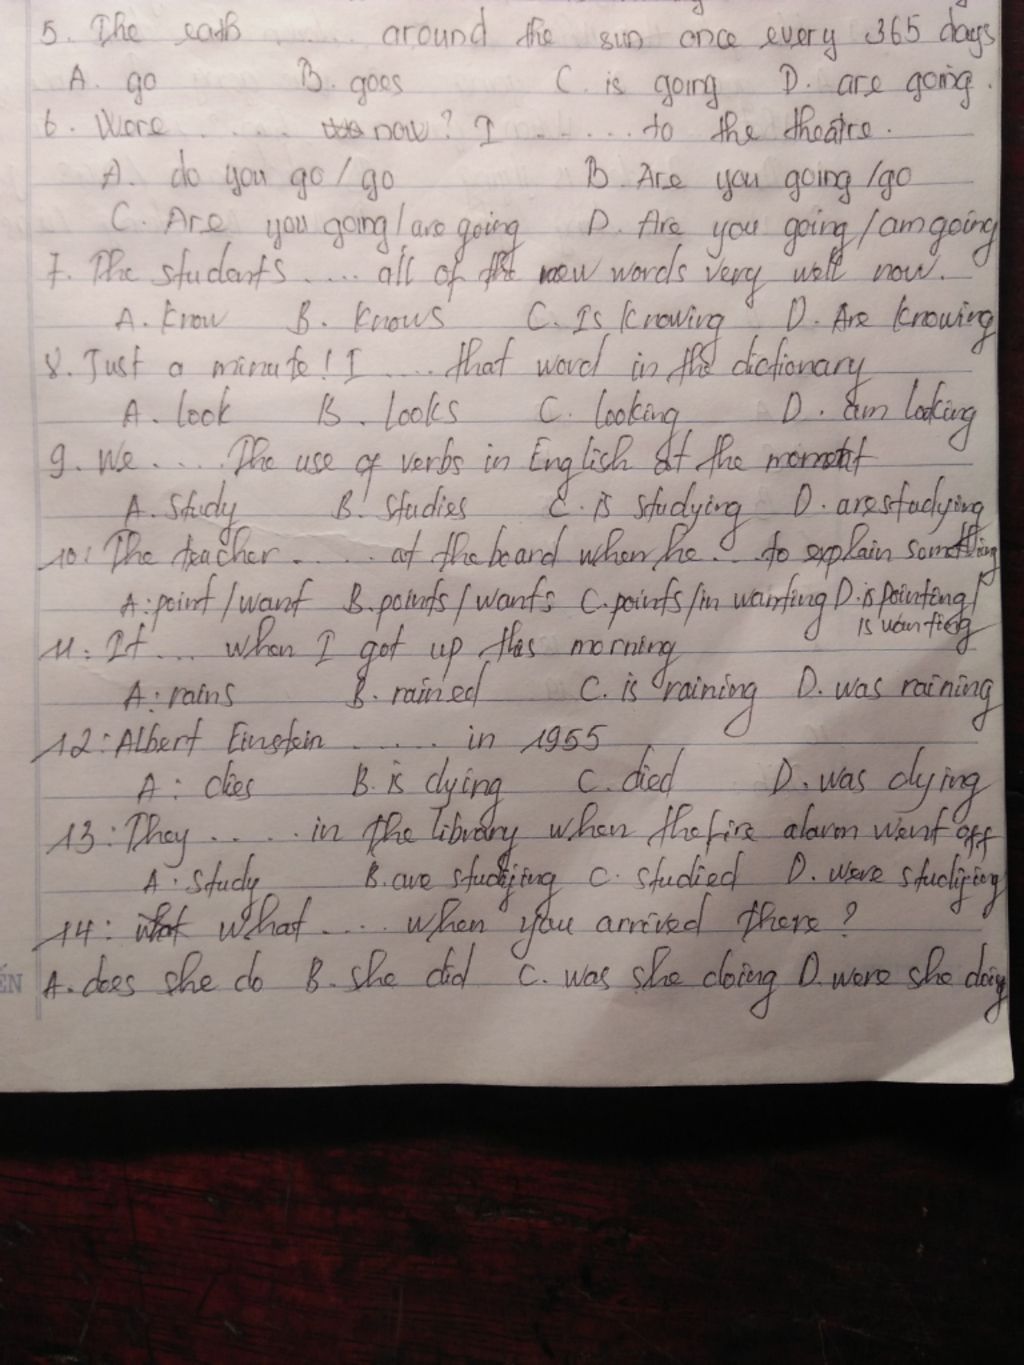 5. The eath ........ around the sun once every 365 days
A. go B. goes C. is going D. are going.
6. Were ....... now? I ...... to the theatre.
A. do you go/go B. Are you going/go
C. Are you going/are going D. Are you going/am going
7. The students .... all of the new words very well now.
A. Know B. Knows C. Is Knowing D. Are Knowing
8. Just a minute! I .... that word in the dictionary
A. look B. looks C. looking D. am looking
9. We .... The use of verbs in English at the moment
A. Study B. Studies C. is studying D. are studying
10: The teacher ...... at the board when he ... to explain something
A: point/want B. points/wants C. points/in wanting D. is pointing/
is wanting
11: It ... when I got up this morning
A: rains B. rained C. is raining D. was raining
12: Albert Einstein ...... in 1955
A: dies B. is dying C. died D. was dying
13: They ..... in the library when the fire alarm went off
A: Study B. are studying C. studied D. were studying
14: what .... when you arrived there?
ẾN
A. does she do B. she did C. was she doing D. were she doing